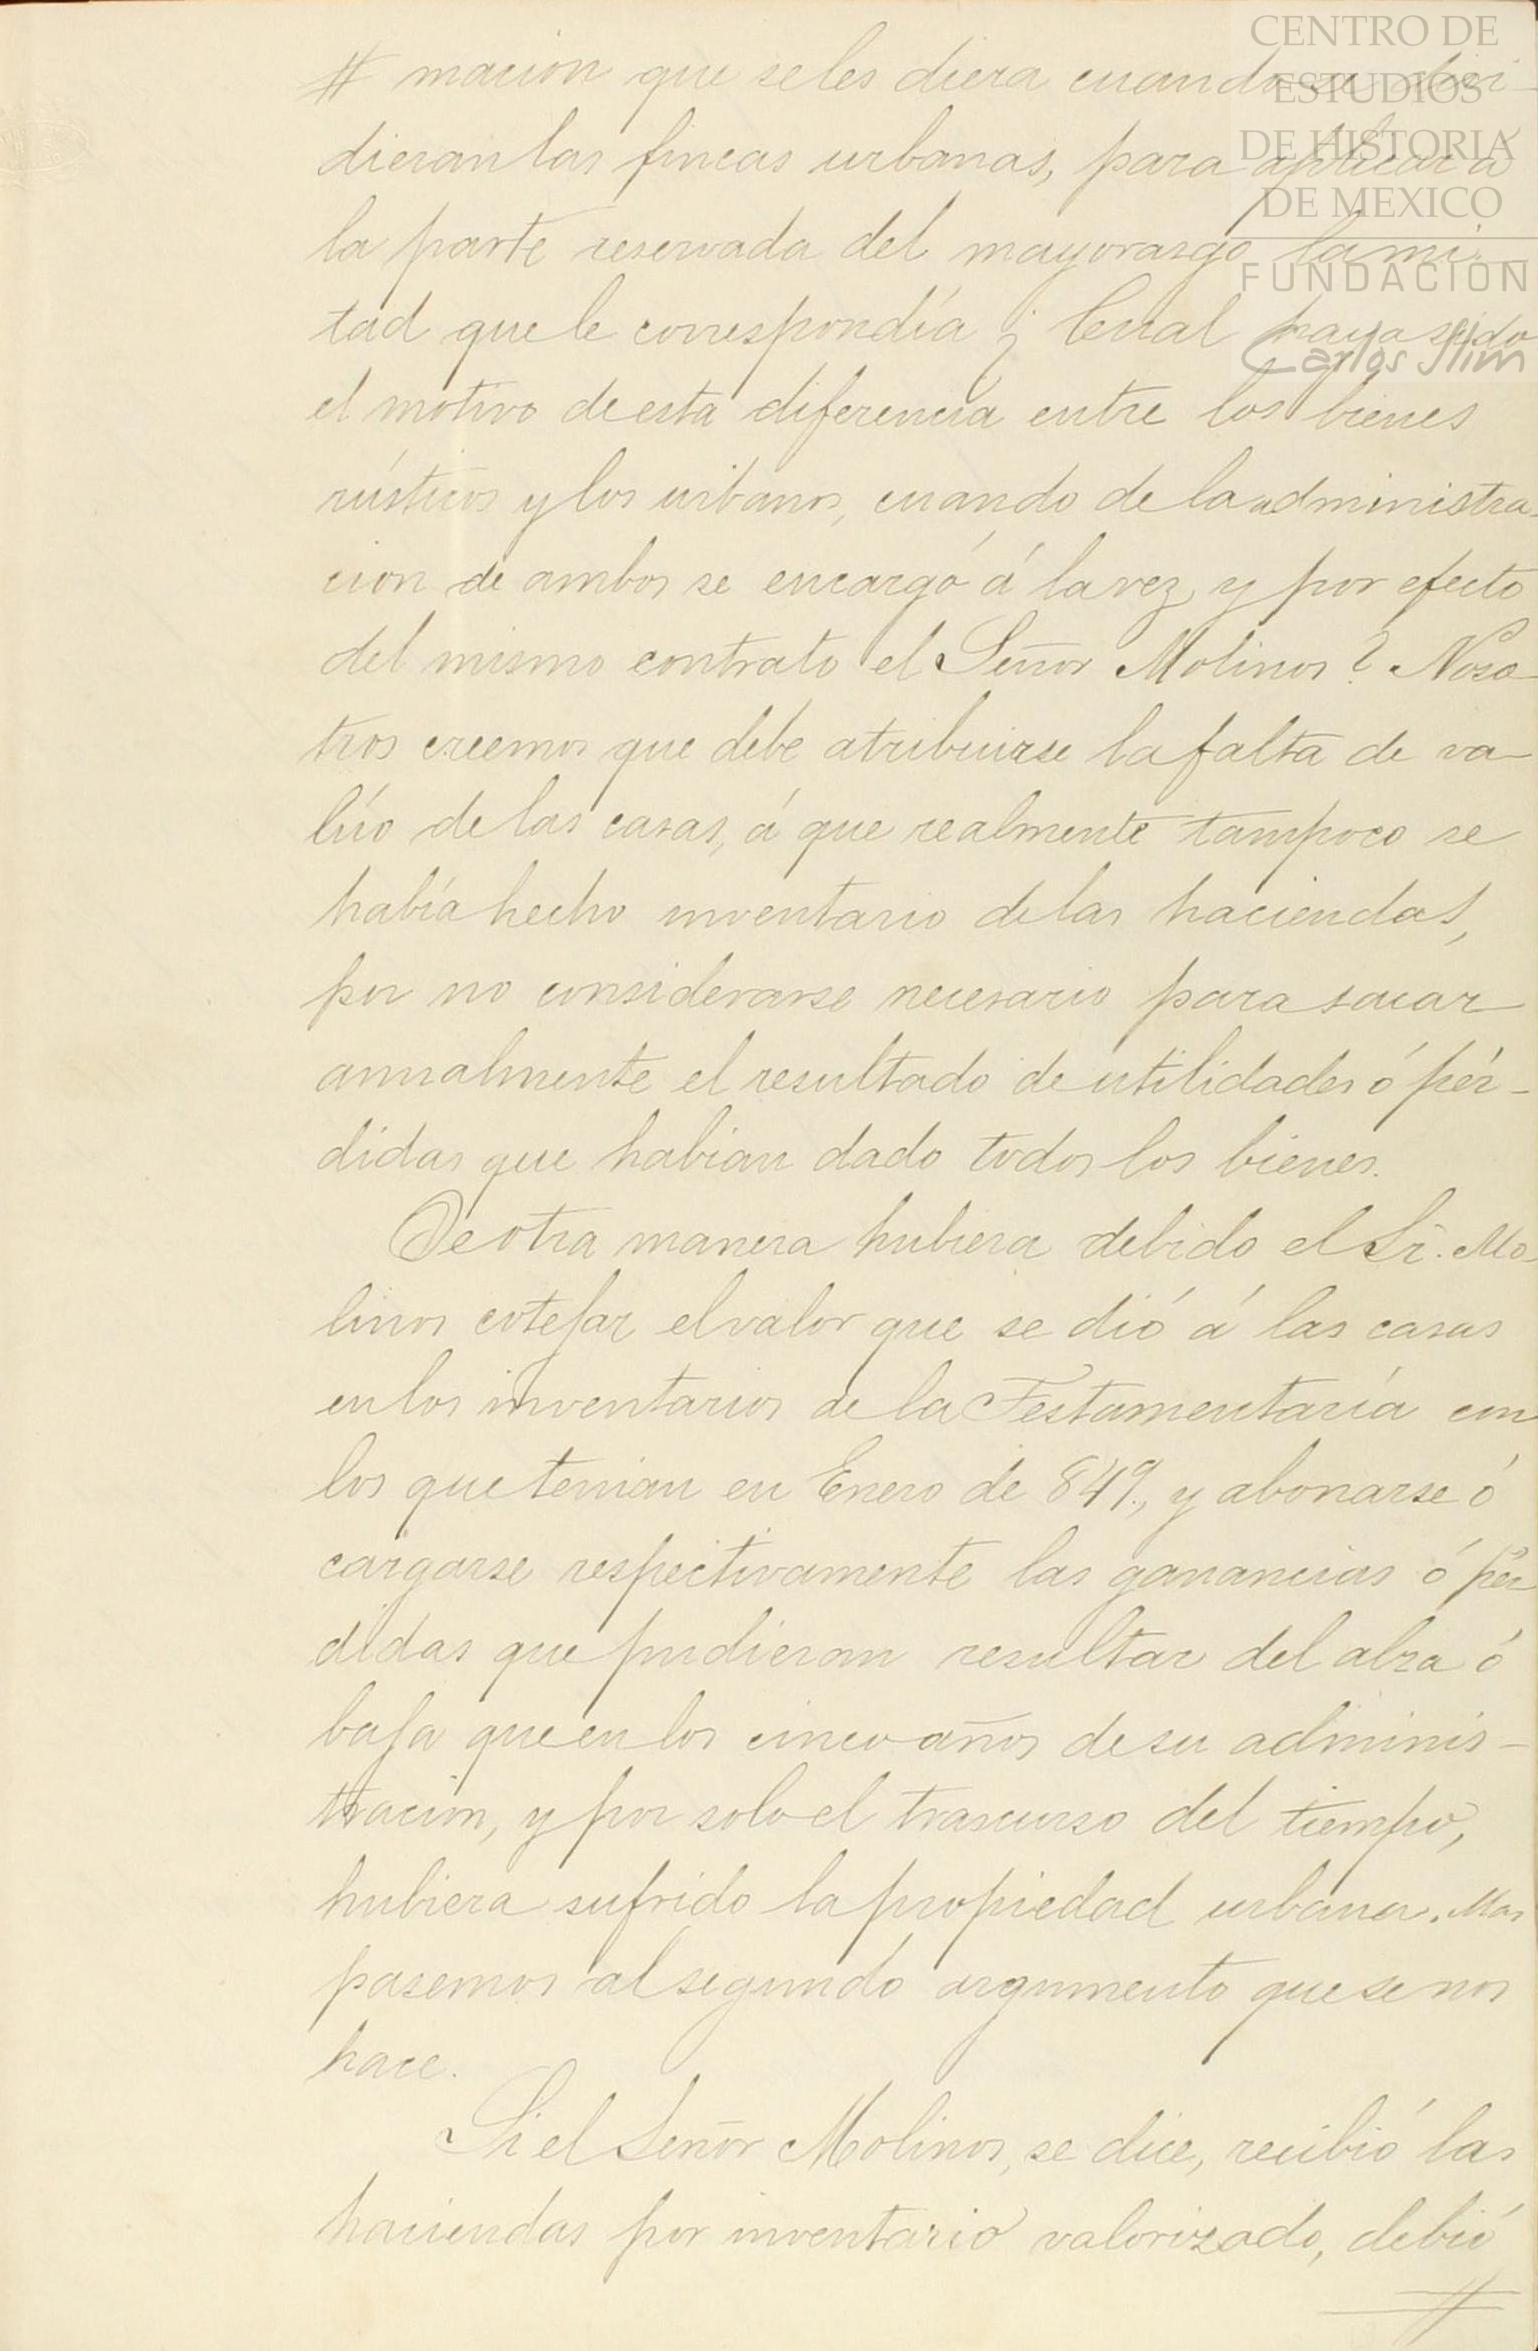 CENTRO DE
ESTUDIOS
DE HISTORIA
DE MEXICO
FUNDACIÓN
Carlos Slim
# macion que se les diera cuando se divi-
dieran las fincas urbanas, para aplicar a
la parte reservada del mayorasgo la mi-
tad que le correspondía ¿ Cual haya sido
el motivo de esta diferencia entre los bienes
rústicos y los urbanos, cuando de la administra-
cion de ambos se encargó á la vez y por efecto
del mismo contrato el Señor Molinos? Noso-
tros creemos que debe atribuirse la falta de va-
lúo de las casas, á que realmente tampoco se
había hecho inventario de las haciendas,
por no considerarse necesario para sacar
anualmente el resultado de utilidades ó pér-
didas que habian dado todos los bienes.
De otra manera hubiera debido el Sr. Mo-
linos cotejar el valor que se dió á las casas
en los inventarios de la Testamentaría con
los que tenian en Enero de 849., y abonarse ó
cargarse respectivamente las ganancias ó pér
didas que pudieran resultar del alza ó
baja que en los cinco años de su adminis-
tracion, y por solo el trascurso del tiempo,
hubiera sufrido la propiedad urbana. Mas
pasemos al segundo argumento que se nos
hace.
Si el Señor Molinos, se dice, recibió las
haciendas por inventario valorizado, debió
#